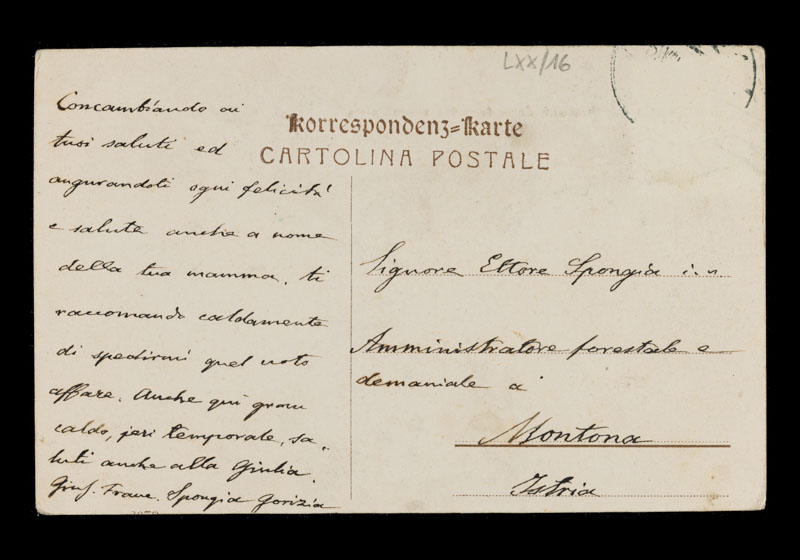 LXX/16
Korrespondenz=Karte
CARTOLINA POSTALE
Concambiando ai
tuoi saluti ed
augurandoti ogni felicità
e salute anche a nome
della tua mamma, ti
raccomando caldamente
di spedirmi quel noto
affare. Anche qui gran
caldo, jeri temporale, sa„
luti anche alla Giulia.
Giuf. Franc. Spongia Gorizia
Signore Ettore Spongia
Amministratore forestale e
demaniale a
Montona
Istria